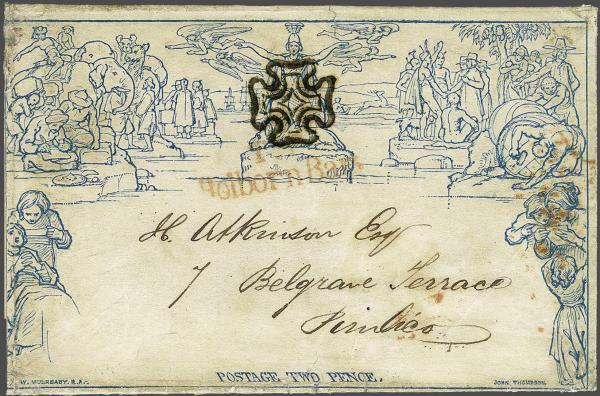 Holborn Bars
H. Atkinson Esq
7 Belgrave Terrace
Pimlico
POSTAGE TWO PENCE.
W. MULREADY. R.A.
JOHN THOMPSON.